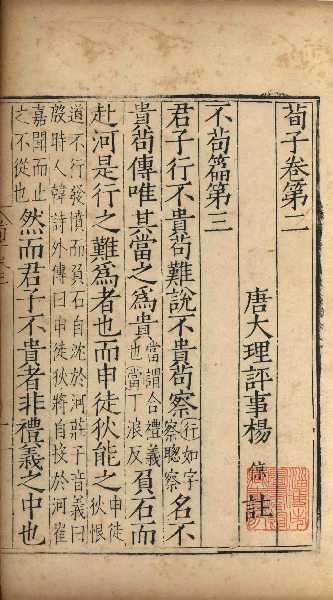 荀子卷第二
唐大理評事楊倞註
不苟篇第三
君子行不貴苟難說不貴苟察行如字察聰察名不
貴苟傳唯其當之爲貴當謂合禮義也當丁浪反負石而
赴河是行之難爲者也而申徒狄能之申徒狄恨
道不行發憤而負石自沈於河莊子音義曰
殷時人韓詩外傳曰申徒狄將自投於河崔
嘉聞而止之不從也然而君子不貴者非禮義之中也